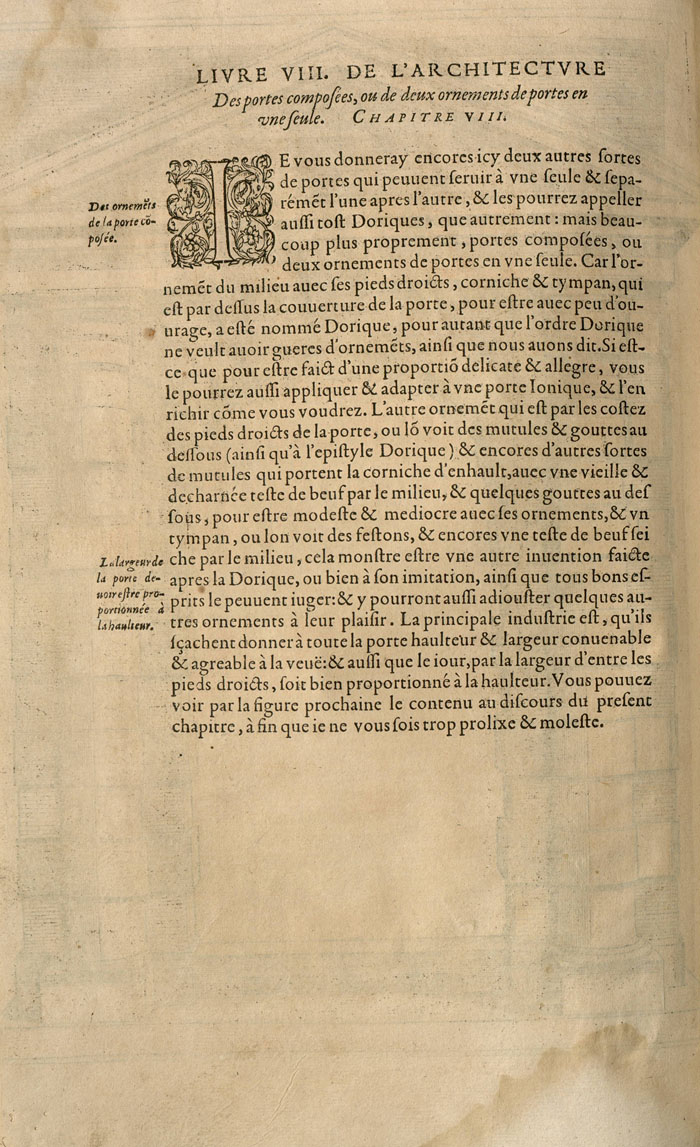 LIVRE VIII. DE L'ARCHITECTVRE
Des portes composées, ou de deux ornements de portes en
vne seule. CHAPITRE VIII.
Des ornemẽts
de la porte cõ-
posée.
IE vous donneray encores icy deux autres sortes
de portes qui peuuent seruir à vne seule & sepa-
rémẽt l'une apres l'autre, & les pourrez appeller
aussi tost Doriques, que autrement : mais beau-
coup plus proprement, portes composées, ou
deux ornements de portes en vne seule. Car l'or-
nemẽt du milieu auec ses pieds droicts, corniche & tympan, qui
est par dessus la couuerture de la porte, pour estre auec peu d'ou-
urage, a esté nommé Dorique, pour autant que l'ordre Dorique
ne veult auoir gueres d'ornemẽts, ainsi que nous auons dit. Si est-
ce que pour estre faict d'une proportiõ delicate & allegre, vous
le pourrez aussi appliquer & adapter à vne porte Ionique, & l'en
richir cõme vous voudrez. L'autre ornemẽt qui est par les costez
des pieds droicts de la porte, ou lõ voit des mutules & gouttes au
dessous (ainsi qu'à l'epistyle Dorique) & encores d'autres sortes
de mutules qui portent la corniche d'enhault, auec vne vieille &
decharnée teste de beuf par le milieu, & quelques gouttes au des
sous, pour estre modeste & mediocre auec ses ornements, & vn
tympan, ou lon voit des festons, & encores vne teste de beuf sei
che par le milieu, cela monstre estre vne autre inuention faicte
apres la Dorique, ou bien à son imitation, ainsi que tous bons es-
prits le peuuent iuger: & y pourront aussi adiouster quelques au-
tres ornements à leur plaisir. La principale industrie est, qu'ils
sçachent donner à toute la porte haulteur & largeur conuenable
& agreable à la veuë: & aussi que le iour, par la largeur d'entre les
pieds droicts, soit bien proportionné à la haulteur. Vous pouuez
voir par la figure prochaine le contenu au discours du present
chapitre, à fin que ie ne vous sois trop prolixe & moleste.
La largeur de
la porte de-
uoir estre pro-
portionnée à
la haulteur.